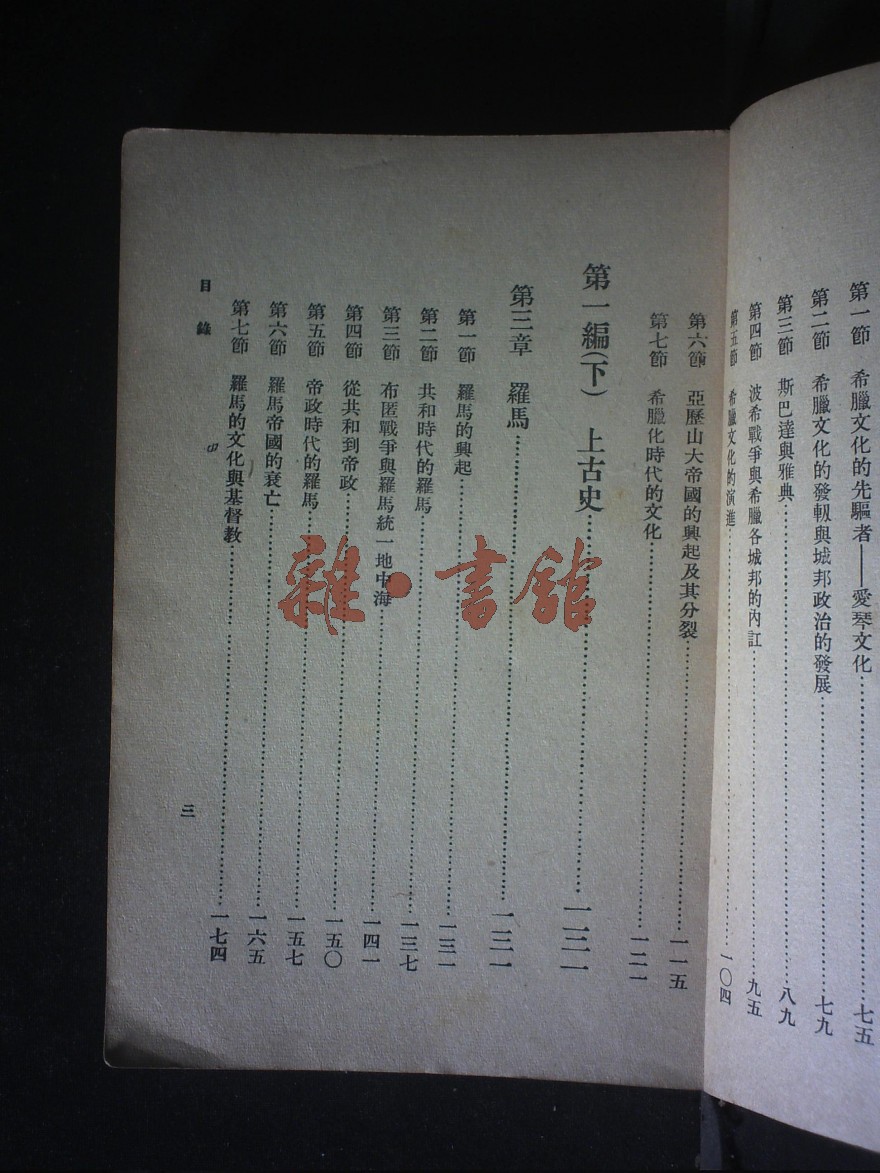 第一節　希臘文化的先驅者——愛琴文化……七五
第二節　希臘文化的發軔與城邦政治的發展……七九
第三節　斯巴達與雅典……八九
第四節　波希戰爭與希臘各城邦的內訌……九五
第五節　希臘文化的演進……一〇四
第六節　亞歷山大帝國的興起及其分裂……一一五
第七節　希臘化時代的文化……一二一
第一編（下）　上古史……一三一
第三章　羅馬……一三一
第一節　羅馬的興起……一三一
第二節　共和時代的羅馬……一三七
第三節　布匿戰爭與羅馬統一地中海……一四一
第四節　從共和到帝政……一五〇
第五節　帝政時代的羅馬……一五七
第六節　羅馬帝國的衰亡……一六五
第七節　羅馬的文化與基督教……一七四
目錄
三
雜·書館